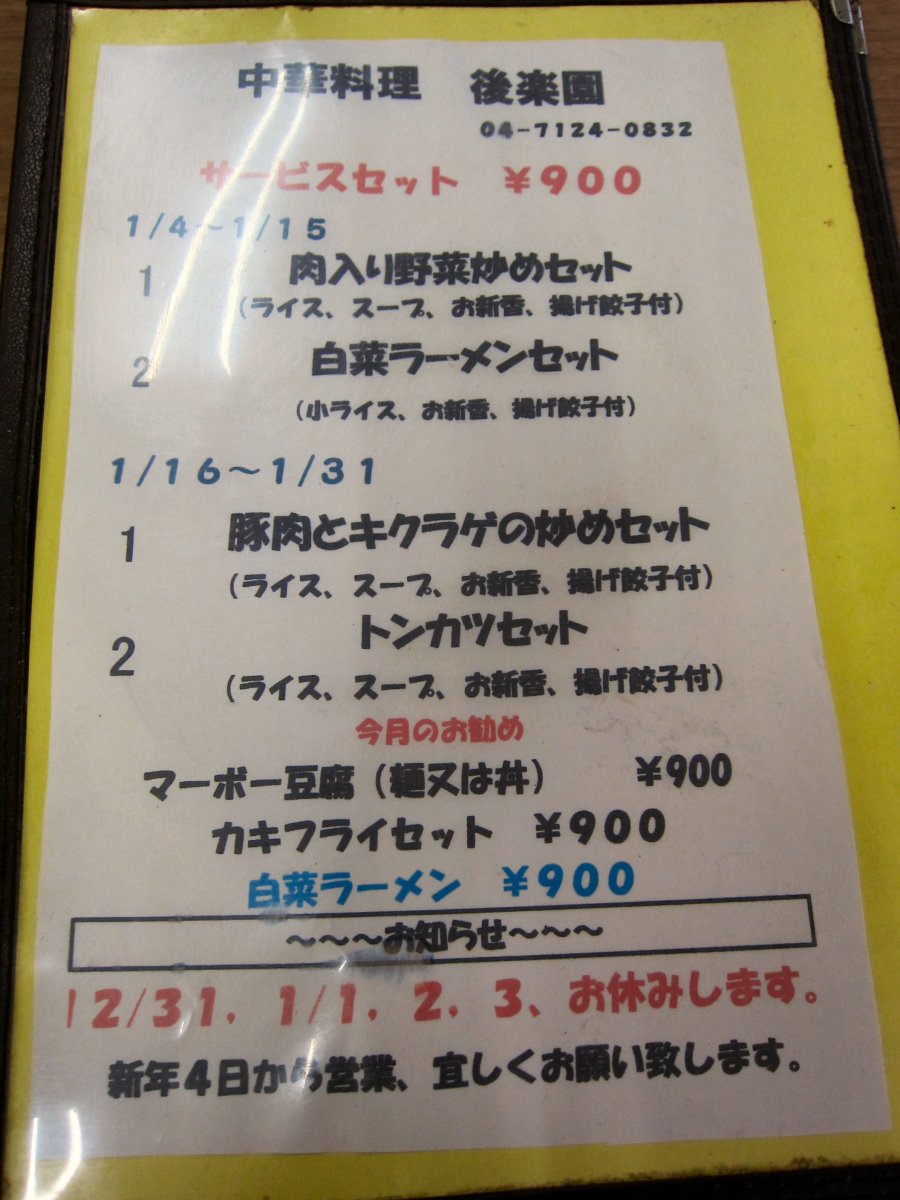 中華料理　後楽園
04-7124-0832
サービスセット　￥９００
１/４～１/１５
1　肉入り野菜炒めセット
（ライス、スープ、お新香、揚げ餃子付）
2　白菜ラーメンセット
（小ライス、お新香、揚げ餃子付）
１/１６～１/３１
1　豚肉とキクラゲの炒めセット
（ライス、スープ、お新香、揚げ餃子付）
2　トンカツセット
（ライス、スープ、お新香、揚げ餃子付）
今月のお勧め
マーボー豆腐（麺又は丼）　￥900
カキフライセット　￥９００
白菜ラーメン　￥９００
～～～お知らせ～～～
１２/３１，１/１，２，３、お休みします。
新年４日から営業、宜しくお願い致します。